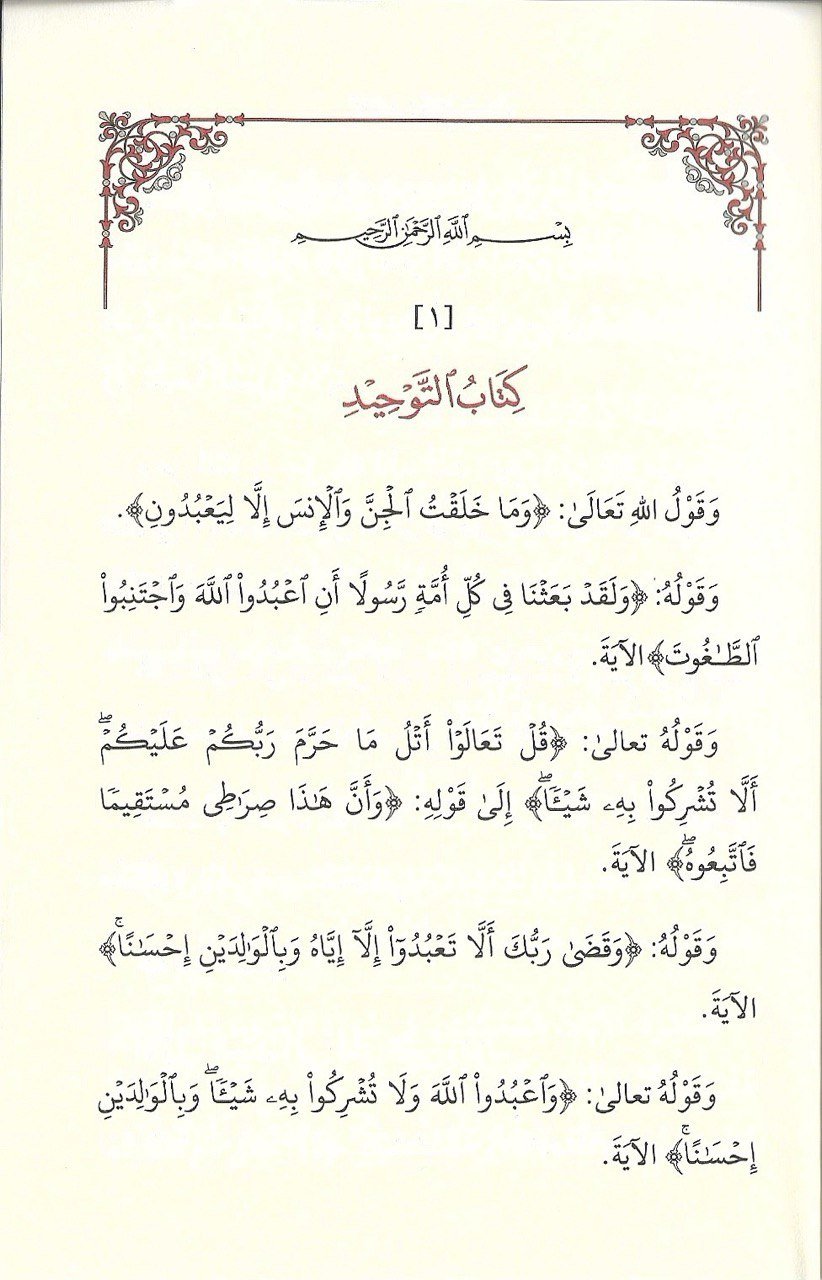 بِسْمِ ٱللَّهِ ٱلرَّحْمَٰنِ ٱلرَّحِيمِ
[١]
كِتَابُ ٱلتَّوْحِيدِ
وَقَوْلُ اللهِ تَعَالَىٰ: ﴿وَمَا خَلَقْتُ ٱلْجِنَّ وَٱلْإِنسَ إِلَّا لِيَعْبُدُونِ﴾.
وَقَوْلُهُ: ﴿وَلَقَدْ بَعَثْنَا فِي كُلِّ أُمَّةٍ رَّسُولًا أَنِ ٱعْبُدُوا۟ ٱللَّهَ وَٱجْتَنِبُوا۟
ٱلطَّـٰغُوتَ﴾ الآيَةَ.
وَقَوْلُهُ تعالىٰ: ﴿قُلْ تَعَالَوْا۟ أَتْلُ مَا حَرَّمَ رَبُّكُمْ عَلَيْكُمْ ۖ
أَلَّا تُشْرِكُوا۟ بِهِۦ شَيْـًٔا ۖ﴾ إِلَىٰ قَوْلِهِ: ﴿وَأَنَّ هَـٰذَا صِرَٰطِى مُسْتَقِيمًا
فَٱتَّبِعُوهُ ۖ﴾ الآيَةَ.
وَقَوْلُهُ: ﴿وَقَضَىٰ رَبُّكَ أَلَّا تَعْبُدُوٓا۟ إِلَّآ إِيَّاهُ وَبِٱلْوَٰلِدَيْنِ إِحْسَـٰنًا ۚ﴾
الآيَةَ.
وَقَوْلُهُ تعالىٰ: ﴿وَٱعْبُدُوا۟ ٱللَّهَ وَلَا تُشْرِكُوا۟ بِهِۦ شَيْـًٔا ۖ وَبِٱلْوَٰلِدَيْنِ
إِحْسَـٰنًا ۚ﴾ الآيَةَ.